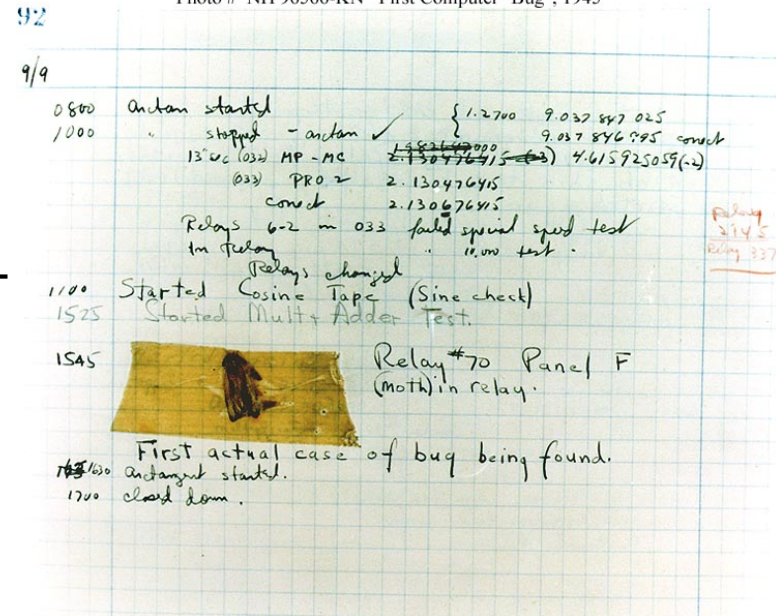 Photo # NH 96566-KN "First Computer "Bug", 1945
92
9/9
0800 andan started
1000 " stopped - andan ✓
{ 1.2700 9.037 847 025
9.037 846 795 conect
13"uc (032) MP - MC 2.130476415 4.615925059(-2)
(033) PRO 2 2.130476415
conect 2.130676415
Relays 6-2 in 033 failed special speed test
In Relay " 10.000 test.
Relays changed
Relay
2145
Relay 337
1100 Started Cosine Tape (Sine check)
1525 Started Mult+ Adder Test.
1545 Relay #70 Panel F
(moth) in relay.
First actual case of bug being found.
1630 andangent started.
1700 closed down.